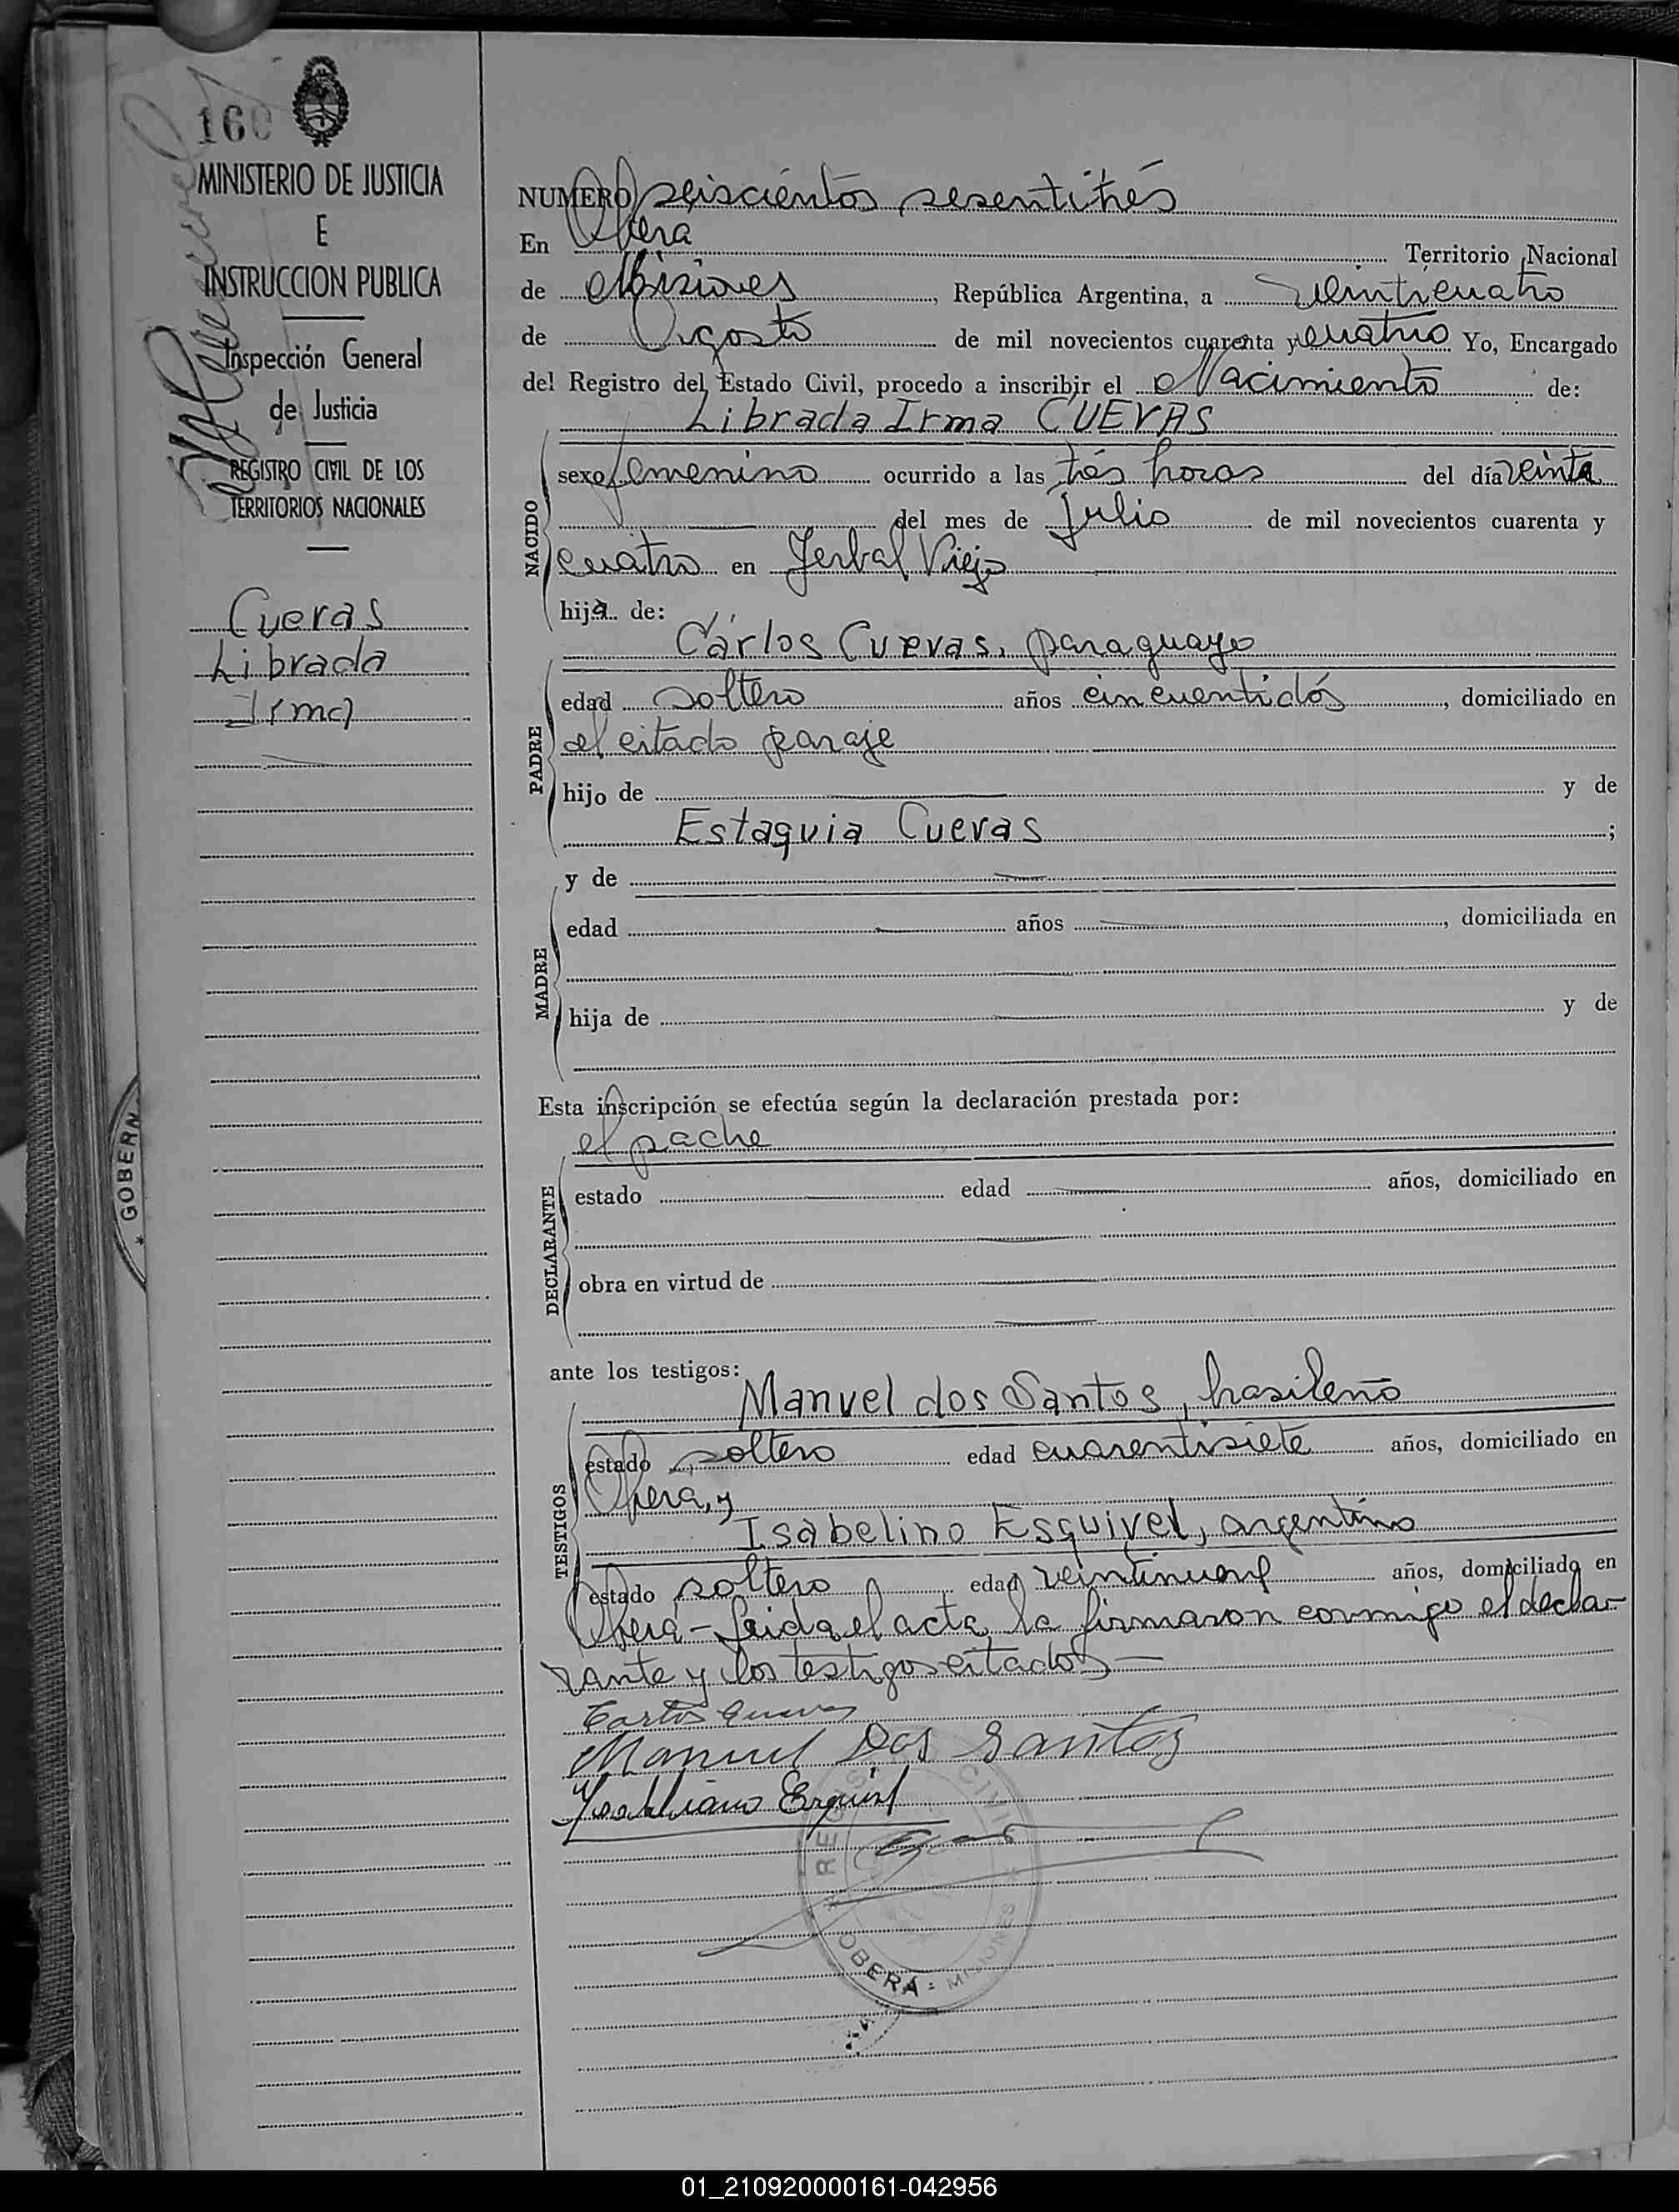 160
MINISTERIO DE JUSTICIA
E
INSTRUCCION PUBLICA
Inspección General
de Justicia
REGISTRO CIVIL DE LOS
TERRITORIOS NACIONALES
Cuevas
Librada
Irma
* GOBERN
NUMERO seiscientos sesentitrés
En Oberá Territorio Nacional
de Misiones, República Argentina, a veinticuatro
de Agosto de mil novecientos cuarenta y cuatro Yo, Encargado
del Registro del Estado Civil, procedo a inscribir el Nacimiento de:
Librada Irma CUEVAS
NACIDO
sexo femenino ocurrido a las trés horas del día veinte
del mes de Julio de mil novecientos cuarenta y
cuatro en Yerbal Viejo
hija de:
Cárlos Cuevas, paraguayo
PADRE
edad soltero años cincuentidós, domiciliado en
el citado paraje
hijo de y de
Estaquia Cuevas ;
y de
MADRE
edad años , domiciliada en
hija de y de
Esta inscripción se efectúa según la declaración prestada por:
el padre
DECLARANTE
estado edad años, domiciliado en
obra en virtud de
ante los testigos:
Manuel dos Santos, brasileño
TESTIGOS
estado soltero edad cuarentisiete años, domiciliado en
Oberá, y
Isabelino Esquivel, argentino
estado soltero edad veintinueve años, domiciliado en
Oberá - Leida el acta la firmaron conmigo el decla-
rante y los testigos citados —
Carlos Cuevas
Manuel Dos Santos
Esquivel
REGIS CIVIL
OBERÁ - MISIONES
01_210920000161-042956